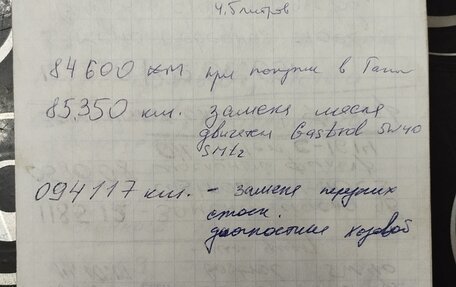 4,5 литров
84 600 км при покупке в
85.350 км. замена масла
двигателя Castrol 5W40
094117 км. - замена передних
стоек.
диагностика ходовой